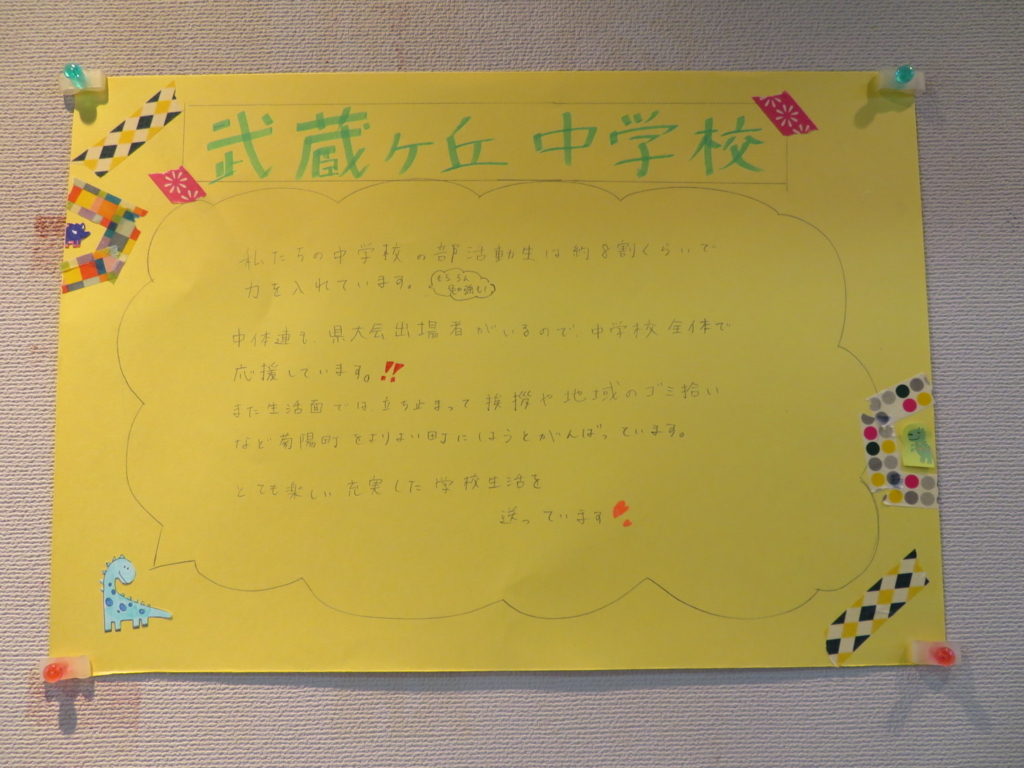 武蔵ヶ丘中学校
私たちの中学校の部活動生は約8割くらいで
力を入れています。
もちろん
勉強も!
中体連も、県大会出場者がいるので、中学校全体で
応援しています。!!
また生活面では立ち止まって挨拶や地域のゴミ拾い
など菊陽町をよりよい町にしようとがんばっています。
とても楽しい充実した学校生活を
送っています